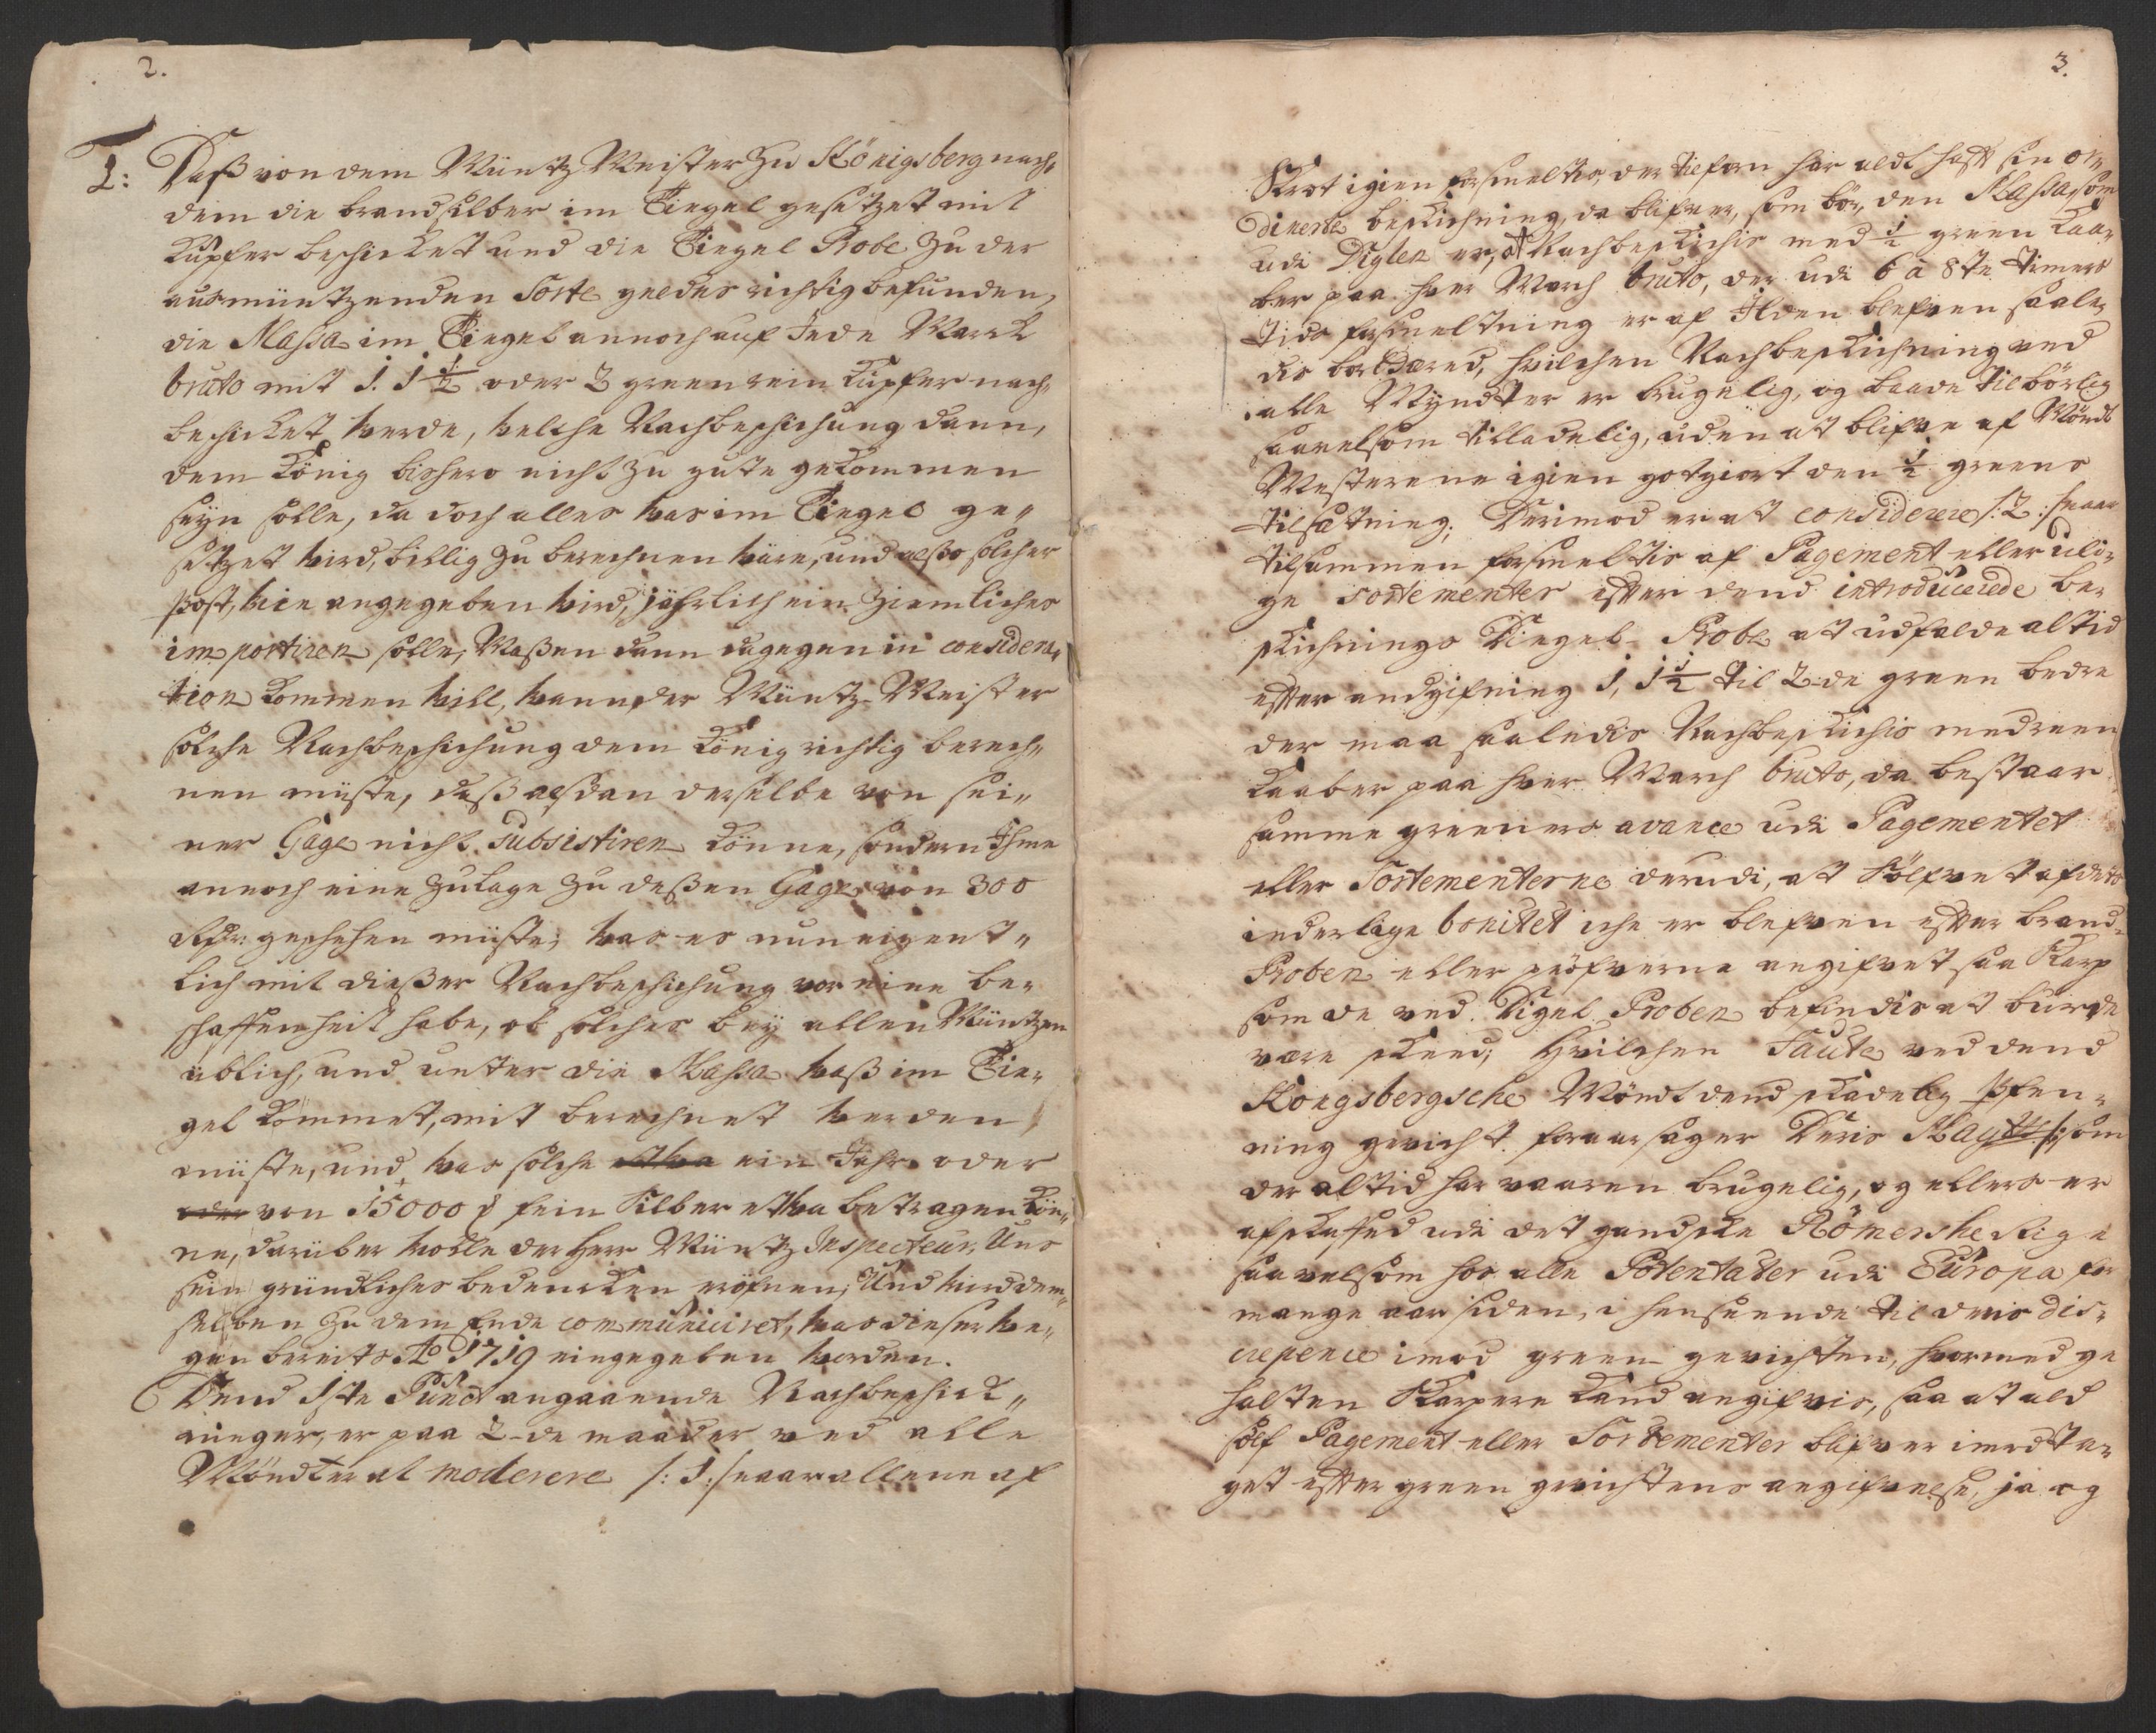 2.
1: Daß von dem Müntz Meister zu Königsberg nach,
dem die brandsilber im Tiegel gesetzet mit
Kupfer beschicket und die Tiegel Probe zu der
ausmüntzenden Sorte geldes richtig befunden,
die Massa im Tiegel annoch auf Jede Marck
bruto mit 1. 1½ oder 2 green rein Kupfer nach,
beschicket werde, welche Nachbeschichung dann,
dem König bishero nicht zu gute gekommen
seyn solle, da doch alles was im Tiegel ge„
setzet wird, billig zu berechnen wäre, und also solcher
post, wie angegeben wird, jährlich ein ziemliches
importiren solle, Maßen dann dagegen in considera„
tion kommen will, wann der Müntz-Meister
solche Nachbeschichung dem König richtig berech„
nen müste, daß alsdan derselbe von sei„
ner Gage nicht subsistiren könne, sondern Ihme
annoch eine zulage zu deßen Gage von 300
Rdr: geschehen müste; was es nun eigent„
lich mit dießer Nachbeschichung vor eine be„
schaffenheit habe, ob solches bey allen Müntzen
üblich, und unter die Massa waß im Tie„
gel kommet, mit berechnet werden
müste, und was solche etwa ein Jahr oder
oder von 15000 fein Silber etwa betragen kön„
ne, darüber wolle der Herr Müntz Inspecteur Uns
sein gründliches bedencken eröfnen, Und wird dem„
selben zu dem Ende communiciret, was dieserwe„
gen bereits Ao 1719 eingegeben worden.
Dend 1ste Punct angaaende Nachbeschick„
ninger, er paa 2-de maader ved alle
Möndter at moderere /: 1:/ naar allene af
3.
Skrot igien forsmeltis, der tilforn har aldt hafft sin or„
dinerte beskichning, da blifver, som bör, den Massa, som
udi Diglen er, at Nachbeskichis med ½ green Kaa„
ber paa hver March bruto, der udi 6 à 8te timers
tids forsmeltning er af Ilden blefven saale„
dis bortæred, hvilchen Nachbeskichning ved
alle Myndter er brugelig, og baade tilbörlig
saavelsom tilladelig, uden at blifve af Möndt
Mesterene igien gotgiort den ½ greens
tilsætning; Derimod er at considerere /: 2 :/ naar
tilsammen forsmeltis af Pagement eller uli„
ge sortementer efter dend introducerede be„
skichnings Tiegel-Probe at udfalde altid
efter andgifning 1, 1½ til 2-de green bedre
der maa saaledis Nachbeskichis med reen
Kaaber paa hver March bruto, da bestaar
samme greeners avance udi Pagementet
eller Sortementerne derudi, at Sölfvet af dets
inderlige bonitet iche er blefven efter brand„
Proben eller pröfverne angifvet saa Skarp
som de ved Tigel Proben befindis at burde
være skeed; Hvilchen Faute ved dend
Kongsbergsche Möndt dend skadelig pfen„
ning gewicht foraarsager Deris som
der altid har vaaren brugelig, og ellers er
afskaffed udi det gandske Römerske Rige
saavelsom hos alle Potentater udi Europa for
mange aar siden, i henseende til deris dis„
crepence imod green gewichten, hvormed ge
halten Skarpere kand angifvis, saa at ald
sölf Pagement eller Sortementer blifver imodta„
get efter green gewichtens angifvelse, ja og